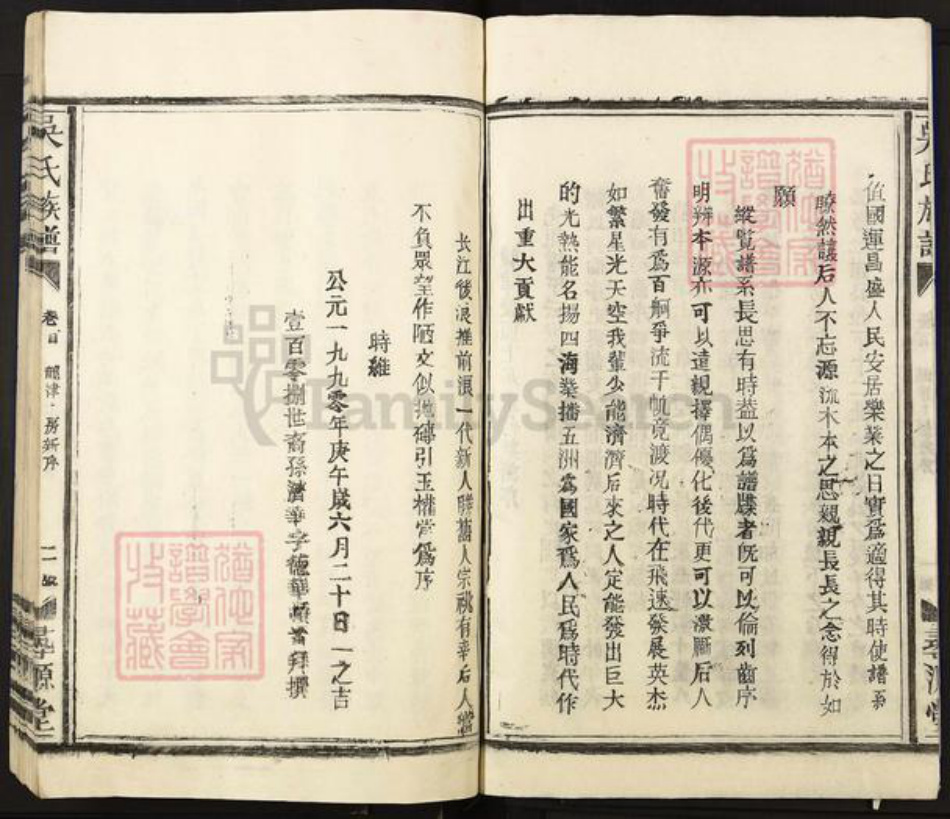 值國運昌盛人民安居樂業之日實爲適得其時使譜系
瞭然讓后人不忘源流木本之思親親長長之念得於如
願
縱覽譜系長思有時蓋以爲譜牒者既可以倫列齒序
明辨本源亦可以遠親擇偶優化後代更可以激勵后人
奮發有爲百舸爭流千帆竟渡况時代在飛速發展英杰
如繁星光天空我輩少能濟濟后來之人定能發出巨大
的光熱能名揚四海業播五洲爲國家爲人民爲時代作
出重大貢獻
长江後浪推前浪一代新人勝舊人宗祧有幸后人當
不負眾望作陋文似抛磚引玉權當爲序
時維
公元一九九零年庚午歲六月二十日一之吉
壹百零捌世裔孫濟華字德華頓首拜撰
吳氏族譜
卷首
津一房新序
尋源堂
吳氏族譜
尋源堂
猶他家譜學會收藏
猶他家譜學會收藏
FamilySearch